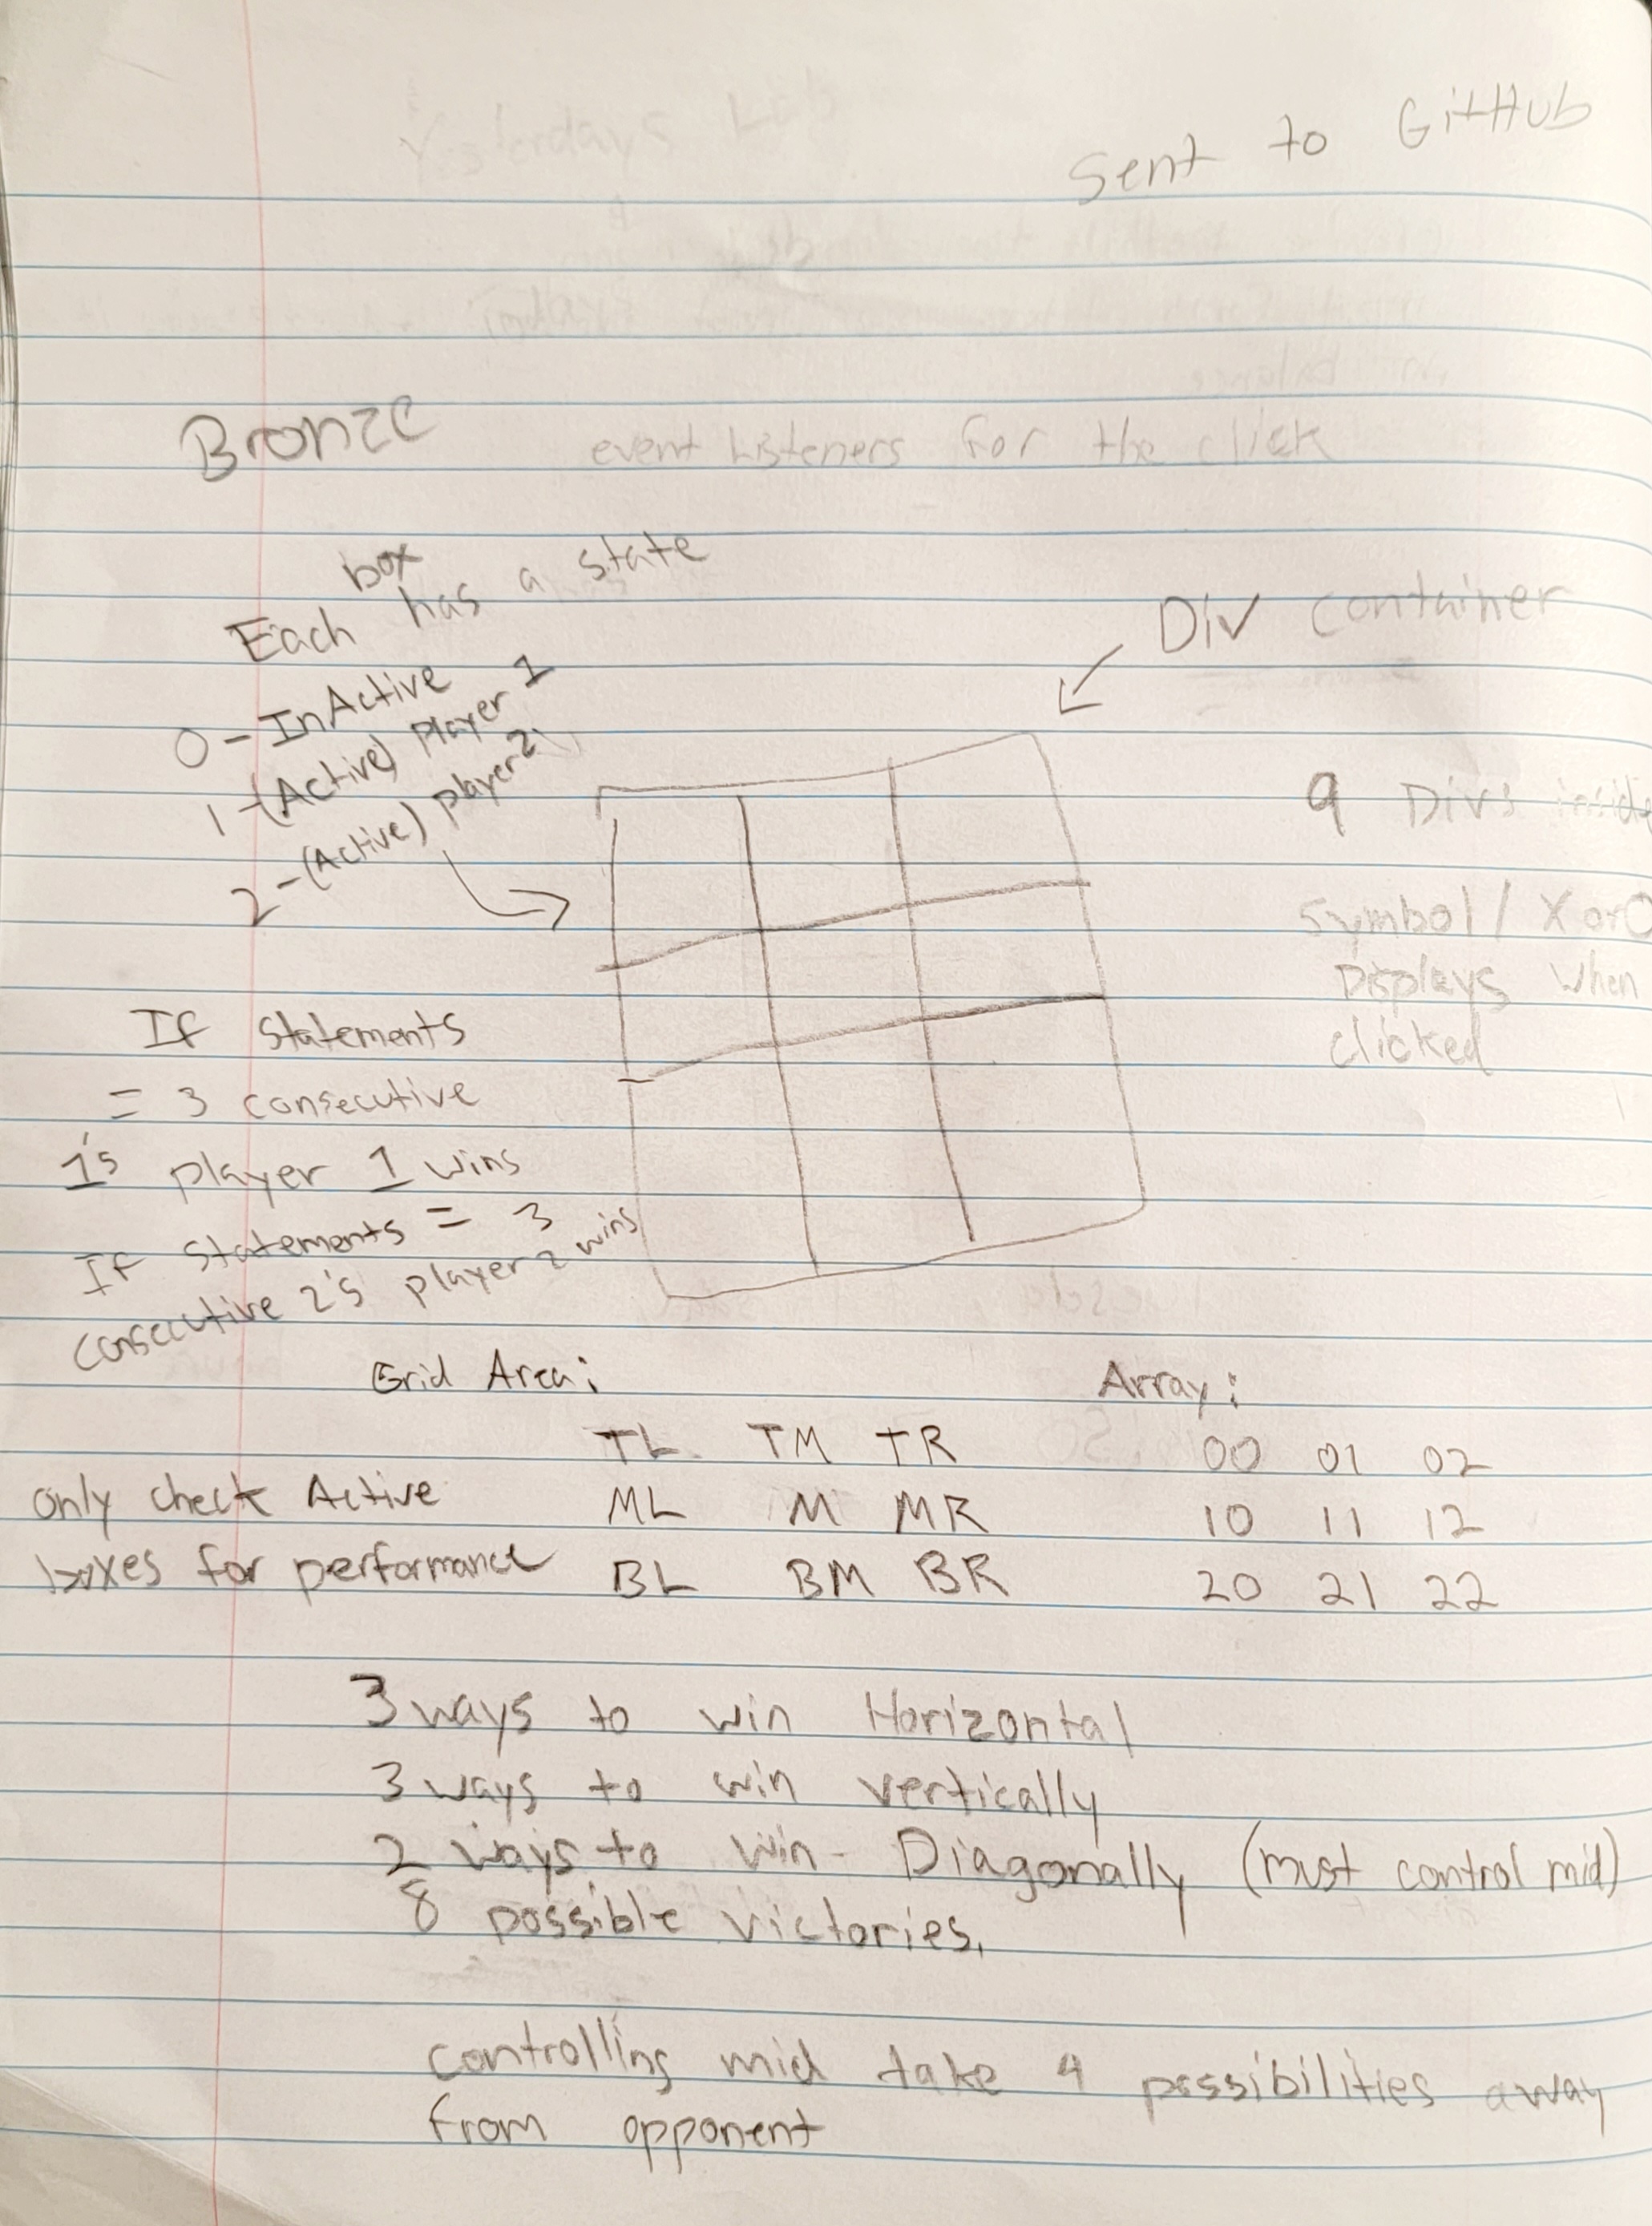 Sent to GitHub
Bronze
event Listeners for the click
box
Each has a state
0 - InActive
1 - (Active) Player 1
2 - (Active) player 2
Div container
9 Divs inside
Symbol / X or O
Displays when
clicked
If statements
= 3 consecutive
1's player 1 wins
If statements = 3
consecutive 2's player 2 wins
Grid Area:
TL TM TR
ML M MR
BL BM BR
Array:
00 01 02
10 11 12
20 21 22
only check Active
boxes for performance
3 ways to win Horizontal
3 ways to win vertically
2 ways to win - Diagonally (must control mid)
8 possible victories.
controlling mid take 4 possibilities away
from opponent